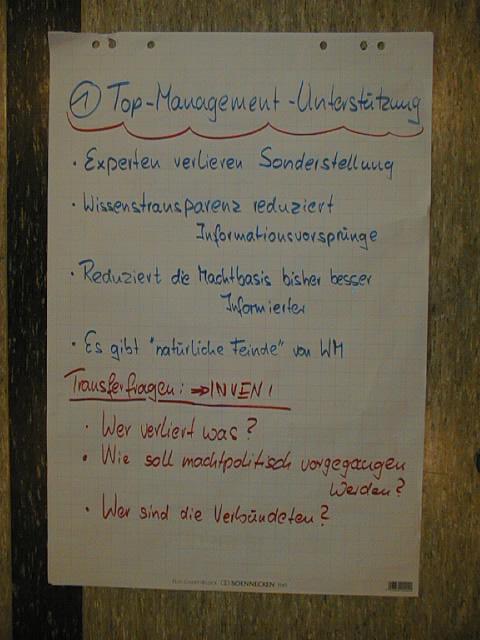 1 Top-Management-Unterstützung
· Experten verlieren Sonderstellung
· Wissenstransparenz reduziert
Informationsvorsprünge
· Reduziert die Machtbasis bisher besser
Informierter
· Es gibt "natürliche Feinde" von WM
Transferfragen: ⇒ INVENI
· Wer verliert was?
· Wie soll machtpolitisch vorgegangen
werden?
· Wer sind die Verbündeten?
SOENNECKEN